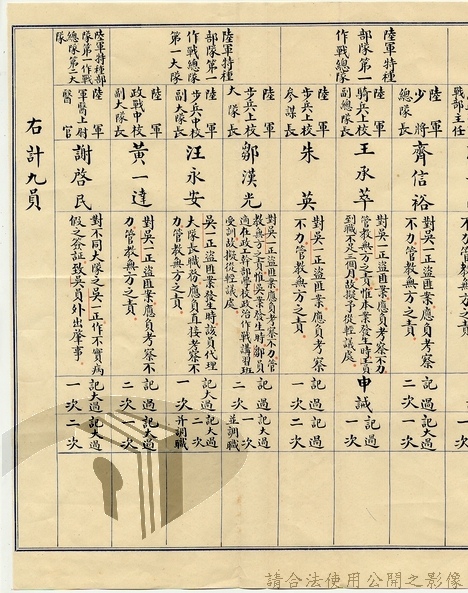 戰部主任
陸軍
少將
總隊長
齊信裕
對吳一正盜匪案應負考察
不力管教無方之責
記過
二次
記大過
一次
陸軍特種
部隊第一
作戰總隊
陸軍
騎兵上校
副總隊長
王承萃
對吳一正盜匪案應負考察不力
管教無方之責惟本案發生時王員
到職不足三個月故擬予從輕議處
申誡
記過
一次
陸軍
步兵上校
參謀長
朱英
對吳一正盜匪案應負考察
不力管教無方之責
記過
一次
記過
二次
陸軍
步兵上校
大隊長
鄒漢光
對吳一正盜匪案應負考察不力管
教無方之責惟吳案發生時鄒員
適在政工幹部學校政治作戰講習班
受訓故擬從輕議處
記過
二次
記大過
一次
並調職
陸軍特種
部隊第一
作戰總隊
第一大隊
陸軍
步兵中校
副大隊長
汪永安
吳一正盜匪案發生時該員代理
大隊長職務應負直接考察不
力管教無方之責
記大過
一次
記大過
二次
并調職
陸軍
政戰中校
副大隊長
黃一達
對吳一正盜匪案應負考察不
力管教無方之責
記過
二次
記大過
一次
陸軍特種部
隊第一作戰
總隊第二大
隊
陸軍
軍醫上尉
醫官
謝啓民
對不同大隊之吳一正作不實病
假之簽証致吳員外出肇事
記大過
一次
記大過
二次
右計九員
請合法使用公開之影像